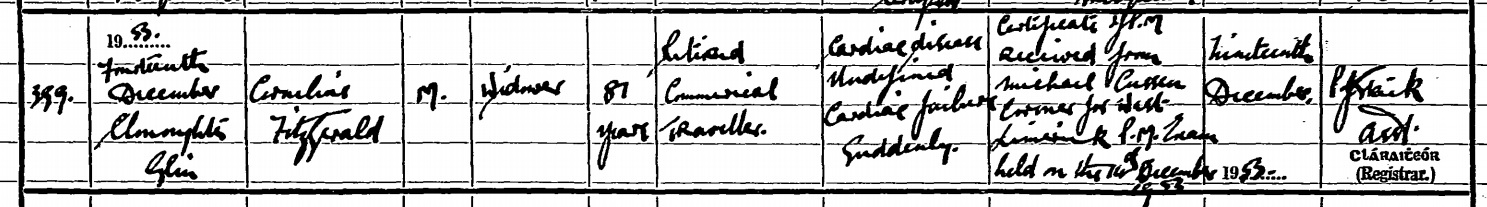 399.
19 53.
Fourteenth
December
Clounoughts
Glin
Cornelius
Fitzgerald
M.
Widower
87
years
Retired
Commercial
Traveller.
Cardiac disease
Undefined
Cardiac failure
Suddenly.
Certificate of P.M
received from
Michael Cussen
Coroner for West
Limerick P.M. Exam
held on the 14th December
1953
Nineteenth
December,
19 53
Asst.
CLÁRAIṪEÓR
(Registrar.)